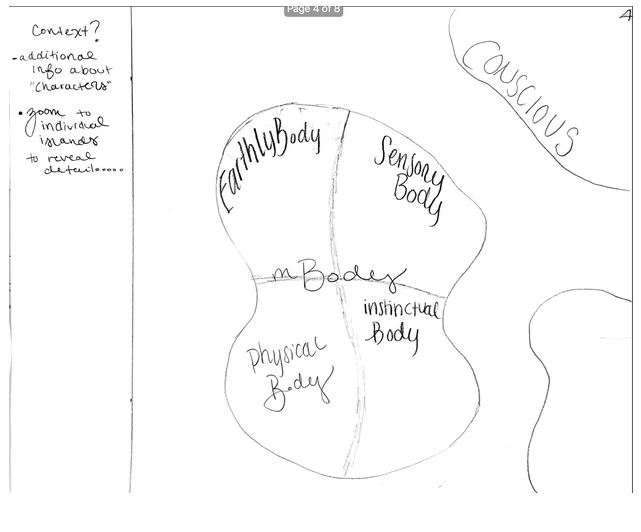 Page 4 of 8
4
Context?
-additional
info about
"characters"
• zoom to
individual
islands
to reveal
detail.....
CONSCIOUS
Earthly Body
Sensory
Body
m Bodey
instinctual
Body
Physical
Body